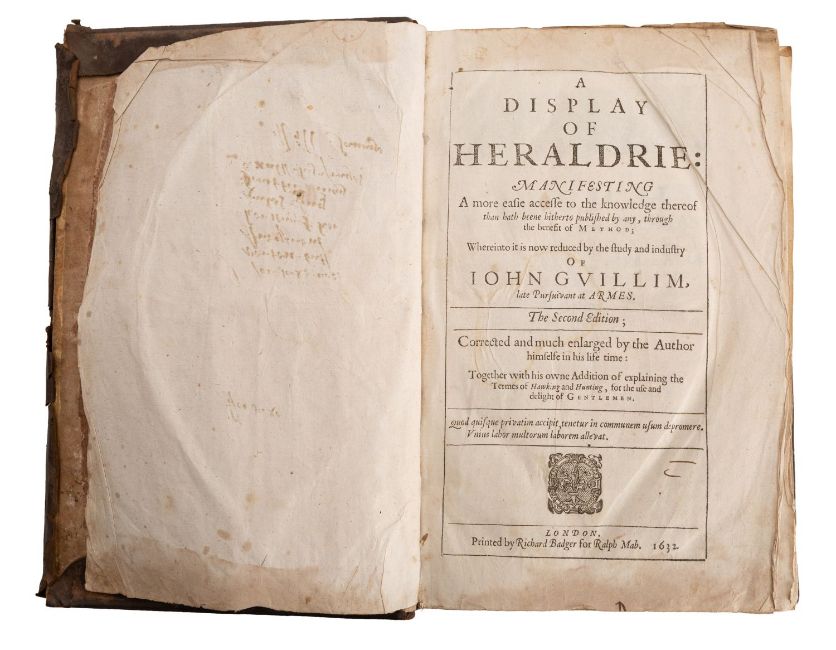 A
DISPLAY
OF
HERALDRIE:
MANIFESTING
A more eaſie acceſſe to the knowledge thereof
than hath beene hitherto publiſhed by any, through
the benefit of METHOD;
Whereinto it is now reduced by the ſtudy and induſtry
OF
IOHN GVILLIM,
late Purſuivant at ARMES.
The Second Edition;
Corrected and much enlarged by the Author
himſelfe in his life time:
Together with his owne Addition of explaining the
Termes of Hawking and Hunting, for the uſe and
delight of GENTLEMEN.
Quod quiſque privatim accipit, tenetur in communem uſum depromere.
Vnius labor multorum laborem allevat.
LONDON,
Printed by Richard Badger for Ralph Mab. 1632